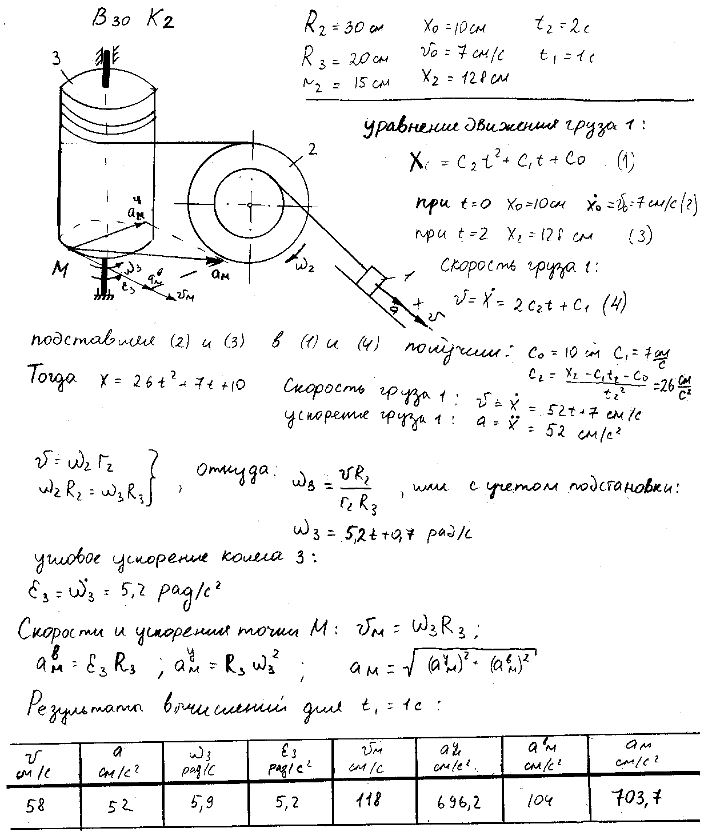 В 30 К2
R₂ = 30 см x₀ = 10 см t₂ = 2 с
R₃ = 20 см v₀ = 7 см/с t₁ = 1 с
r₂ = 15 см x₂ = 128 см
3
2
M
a_м^ц
a_м
ω₃
ε₃
a_м^в
v_м
ω₂
1
a
+
v
уравнение движения груза 1:
X₁ = C₂t² + C₁t + C₀ (1)
при t=0 x₀=10см ẋ₀=v₀=7 см/с (2)
при t=2 x₂=128 см (3)
Скорость груза 1:
v = ẋ = 2C₂t + C₁ (4)
подставляем (2) и (3) в (1) и (4) получим: C₀ = 10 см C₁ = 7 см/с
C₂ = (x₂ - C₁t₂ - C₀)/t₂² = 26 см/с²
Тогда x = 26t² + 7t + 10
Скорость груза 1: v = ẋ = 52t + 7 см/с
ускорение груза 1: a = ẍ = 52 см/с²
v = ω₂ r₂
ω₂R₂ = ω₃R₃ } , откуда: ω₃ = vR₂/r₂R₃ , или с учетом подстановки:
ω₃ = 5,2t + 0,7 рад/с
угловое ускорение колеса 3:
ε₃ = ω̇₃ = 5,2 рад/с²
Скорости и ускорения точки М: v_м = ω₃R₃;
a_м^в = ε₃R₃ ; a_м^ц = R₃ω₃² ; a_м = √((a_м^ц)² + (a_м^в)²)
Результаты вычислений для t₁ = 1с:
v см/с a см/с² ω₃ рад/с ε₃ рад/с² v_м см/с a_м^ц см/с² a_м^в см/с² a_м см/с²
58 52 5,9 5,2 118 696,2 104 703,7